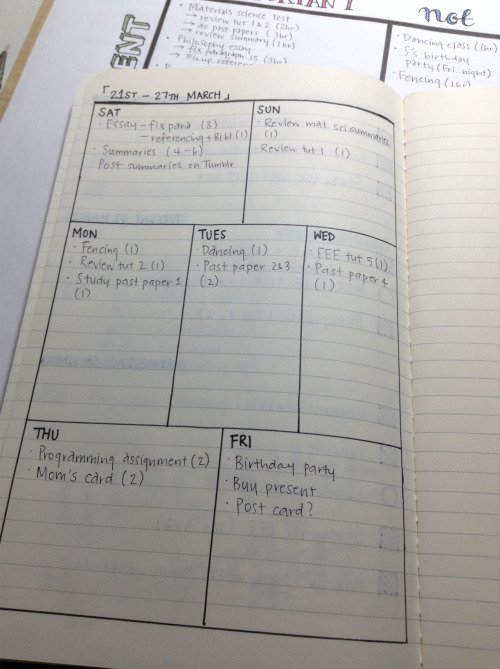 not
· Materials science test
→ review tut 1 & 2 (2hr)
→ do past papers (3hr)
→ review summary (1hr)
· Philosophy essay
· Dancing class (1hr)
· S's birthday
party (Fri. night)
· Fencing (1hr)
「21ST - 27TH MARCH」
SAT
· Essay - fix para (3)
- referencing + Bibl. (1)
· Summaries (4-6)
Post summaries on Tumblr
SUN
· Review mat. sci summaries
(1)
· Review tut 1 (1)
MON
· Fencing (1)
· Review tut 2 (1)
· Study past paper 1
(1)
TUES
· Dancing (1)
· Past paper 2&3
(2)
WED
· EEE tut 5 (1)
· Past paper 4
(1)
THU
· Programming assignment (2)
· Mom's card (2)
FRI
· Birthday party
· Buy present
· Post card?